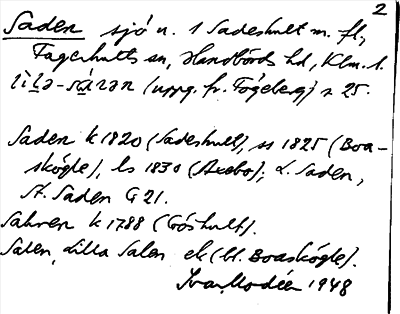 2
Saden sjö n. 1 Sadeshult m. fl.,
Fagerhults sn, Handbörds hd, Klm. l.
lìlạ-sạ́rən (uppg. fr. Fågeberg) s 25.
Saden k 1820 (Sadeshult), ss 1825 (Boa-
skögle), ls 1830 (Axebo), L. Saden,
St. Saden G 21.
Sahren k 1788 (Göshult).
Salen, Lilla Salen ek (bl. Boaskögle).
Ivar Modéer 1948